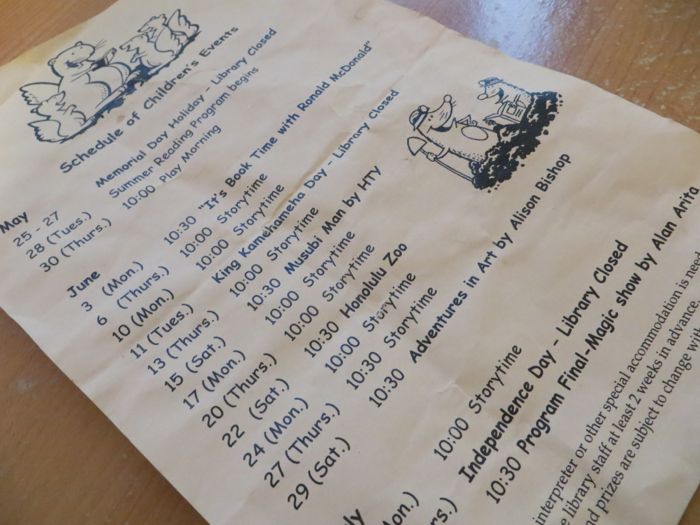 Schedule of Children's Events
May
25 - 27 Memorial Day Holiday - Library Closed
28 (Tues.) Summer Reading Program begins
30 (Thurs.) 10:00 Play Morning
June
3 (Mon.) 10:30 "It's Book Time with Ronald McDonald"
6 (Thurs.) 10:00 Storytime
10 (Mon.) 10:00 Storytime
11 (Tues.) King Kamehameha Day - Library Closed
13 (Thurs.) 10:00 Storytime
15 (Sat.) 10:30 Musubi Man by HTY
17 (Mon.) 10:00 Storytime
20 (Thurs.) 10:00 Storytime
22 (Sat.) 10:30 Honolulu Zoo
24 (Mon.) 10:00 Storytime
27 (Thurs.) 10:30 Storytime
29 (Sat.) 10:30 Adventures in Art by Alison Bishop
ly
on.) 10:00 Storytime
rs.) Independence Day - Library Closed
10:30 Program Final-Magic show by Alan Arita
interpreter or other special accommodation is need
library staff at least 2 weeks in advance.
d prizes are subject to change with